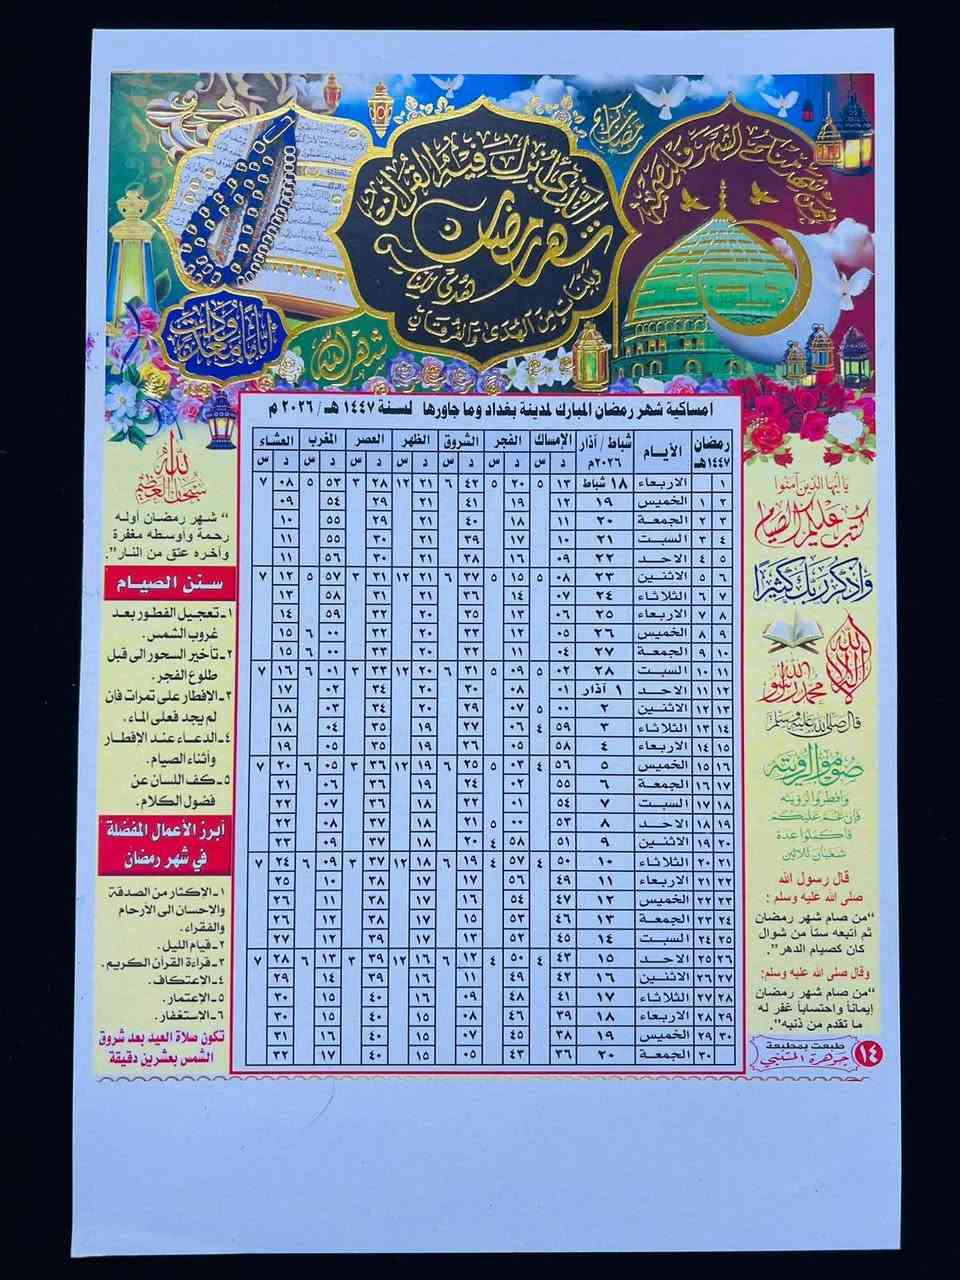 رمضان كريم
شهر رمضان الذي أنزل فيه القرآن
هدى للناس
وبينات من الهدى والفرقان
فمن شهد منكم الشهر فليصمه
أياما معدودات
شهر الله
امساكية شهر رمضان المبارك لمدينة بغداد وما جاورها لسنة ١٤٤٧ هـ / ٢٠٢٦ م
رمضان ١٤٤٧هـ الأيـام شباط / آذار ٢٠٢٦م الإمساك الفجر الشروق الظهر العصر المغرب العشاء
د س د س د س د س د س د س د س
١ الاربعاء ١٨ شباط ١٣ ٥ ٢٠ ٥ ٤٢ ٦ ٢١ ١٢ ٢٨ ٣ ٥٣ ٥ ٠٨ ٧
٢ ١ الخميس ١٩ ١٢ ١٩ ٤١ ٢١ ٢٩ ٥٤ ٠٩
٣ ٢ الجمعة ٢٠ ١١ ١٨ ٤٠ ٢١ ٢٩ ٥٥ ١٠
٤ ٣ السبت ٢١ ١٠ ١٧ ٣٩ ٢١ ٣٠ ٥٥ ١١
٥ ٤ الاحد ٢٢ ٠٩ ١٦ ٣٨ ٢١ ٣٠ ٥٦ ١١
٦ ٥ الاثنين ٢٣ ٠٨ ٥ ١٥ ٥ ٣٧ ٦ ٢١ ١٢ ٣١ ٣ ٥٧ ٥ ١٢ ٧
٧ ٦ الثلاثاء ٢٤ ٠٧ ١٤ ٣٦ ٢١ ٣١ ٥٨ ١٣
٨ ٧ الاربعاء ٢٥ ٠٦ ١٣ ٣٥ ٢٠ ٣٢ ٥٩ ١٤
٩ ٨ الخميس ٢٦ ٠٥ ١٢ ٣٣ ٢٠ ٣٢ ٠٠ ٦ ١٥
١٠ ٩ الجمعة ٢٧ ٠٤ ١١ ٣٢ ٢٠ ٣٣ ٠٠ ٦ ١٥
١١ ١٠ السبت ٢٨ ٠٢ ٥ ٠٩ ٥ ٣١ ٦ ٢٠ ١٢ ٣٣ ٣ ٠١ ٦ ١٦ ٧
١٢ ١١ الاحد ١ آذار ٠١ ٠٨ ٣٠ ٢٠ ٣٤ ٠٢ ١٧
١٣ ١٢ الاثنين ٢ ٠٠ ٥ ٠٧ ٢٩ ٢٠ ٣٤ ٠٣ ١٨
١٤ ١٣ الثلاثاء ٣ ٥٩ ٤ ٠٦ ٢٧ ١٩ ٣٥ ٠٤ ١٨
١٥ ١٤ الاربعاء ٤ ٥٨ ٠٥ ٢٦ ١٩ ٣٥ ٠٥ ١٩
١٦ ١٥ الخميس ٥ ٥٦ ٤ ٠٣ ٥ ٢٥ ٦ ١٩ ١٢ ٣٦ ٣ ٠٥ ٦ ٢٠ ٧
١٧ ١٦ الجمعة ٦ ٥٥ ٠٢ ٢٤ ١٩ ٣٦ ٠٦ ٢١
١٨ ١٧ السبت ٧ ٥٤ ٠١ ٢٢ ١٨ ٣٦ ٠٧ ٢٢
١٩ ١٨ الاحد ٨ ٥٣ ٠٠ ٥ ٢١ ١٨ ٣٧ ٠٨ ٢٢
٢٠ ١٩ الاثنين ٩ ٥١ ٥٨ ٤ ٢٠ ١٨ ٣٧ ٠٩ ٢٣
٢١ ٢٠ الثلاثاء ١٠ ٥٠ ٤ ٥٧ ٤ ١٩ ٦ ١٨ ١٢ ٣٧ ٣ ٠٩ ٦ ٢٤ ٧
٢٢ ٢١ الاربعاء ١١ ٤٩ ٥٦ ١٧ ١٧ ٣٨ ١٠ ٢٥
٢٣ ٢٢ الخميس ١٢ ٤٧ ٥٤ ١٦ ١٧ ٣٨ ١١ ٢٦
٢٤ ٢٣ الجمعة ١٣ ٤٦ ٥٣ ١٥ ١٧ ٣٨ ١٢ ٢٦
٢٥ ٢٤ السبت ١٤ ٤٥ ٥٢ ١٣ ١٧ ٣٩ ١٢ ٢٧
٢٦ ٢٥ الاحد ١٥ ٤٣ ٤ ٥٠ ٤ ١٢ ٦ ١٦ ١٢ ٣٩ ٣ ١٣ ٦ ٢٨ ٧
٢٧ ٢٦ الاثنين ١٦ ٤٢ ٤٩ ١١ ١٦ ٣٩ ١٤ ٢٩
٢٨ ٢٧ الثلاثاء ١٧ ٤١ ٤٨ ٠٩ ١٦ ٤٠ ١٥ ٣٠
٢٩ ٢٨ الاربعاء ١٨ ٣٩ ٤٦ ٠٨ ١٥ ٤٠ ١٥ ٣٠
٣٠ ٢٩ الخميس ١٩ ٣٨ ٤٥ ٠٧ ١٥ ٤٠ ١٦ ٣١
٣٠ الجمعة ٢٠ ٣٦ ٤٣ ٠٥ ١٥ ٤٠ ١٧ ٣٢
يا أيها الذين آمنوا
كتب عليكم الصيام
واذكر ربك كثيرا
لا إله إلا الله
محمد رسول الله
قال صلى الله عليه وسلم
صوموا لرؤيته
وافطروا لرؤيته
فإن غم عليكم
فأكملوا عدة
شعبان ثلاثين
قال رسول الله
صلى الله عليه وسلم :
"من صام شهر رمضان
ثم أتبعه ستاً من شوال
كان كصيام الدهر"
وقال صلى الله عليه وسلم:
"من صام شهر رمضان
إيماناً واحتساباً غفر له
ما تقدم من ذنبه".
طبعت بمطبعة
جوهرة المتنبي
١٤
سبحان الله العظيم
" شهر رمضان أوله
رحمة وأوسطه مغفرة
وآخره عتق من النار".
سنن الصيام
١ـ تعجيل الفطور بعد
غروب الشمس.
٢ـ تأخير السحور الى قبل
طلوع الفجر.
٣ـ الإفطار على تمرات فإن
لم يجد فعلى الماء.
٤ـ الدعاء عند الإفطار
وأثناء الصيام.
٥ـ كف اللسان عن
فضول الكلام.
أبرز الأعمال المفضلة
في شهر رمضان
١ـ الإكثار من الصدقة
والإحسان الى الأرحام
والفقراء.
٢ـ قيام الليل.
٣ـ قراءة القرآن الكريم.
٤ـ الإعتكاف.
٥ـ الإعتمار.
٦ـ الإستغفار.
تكون صلاة العيد بعد شروق
الشمس بعشرين دقيقة